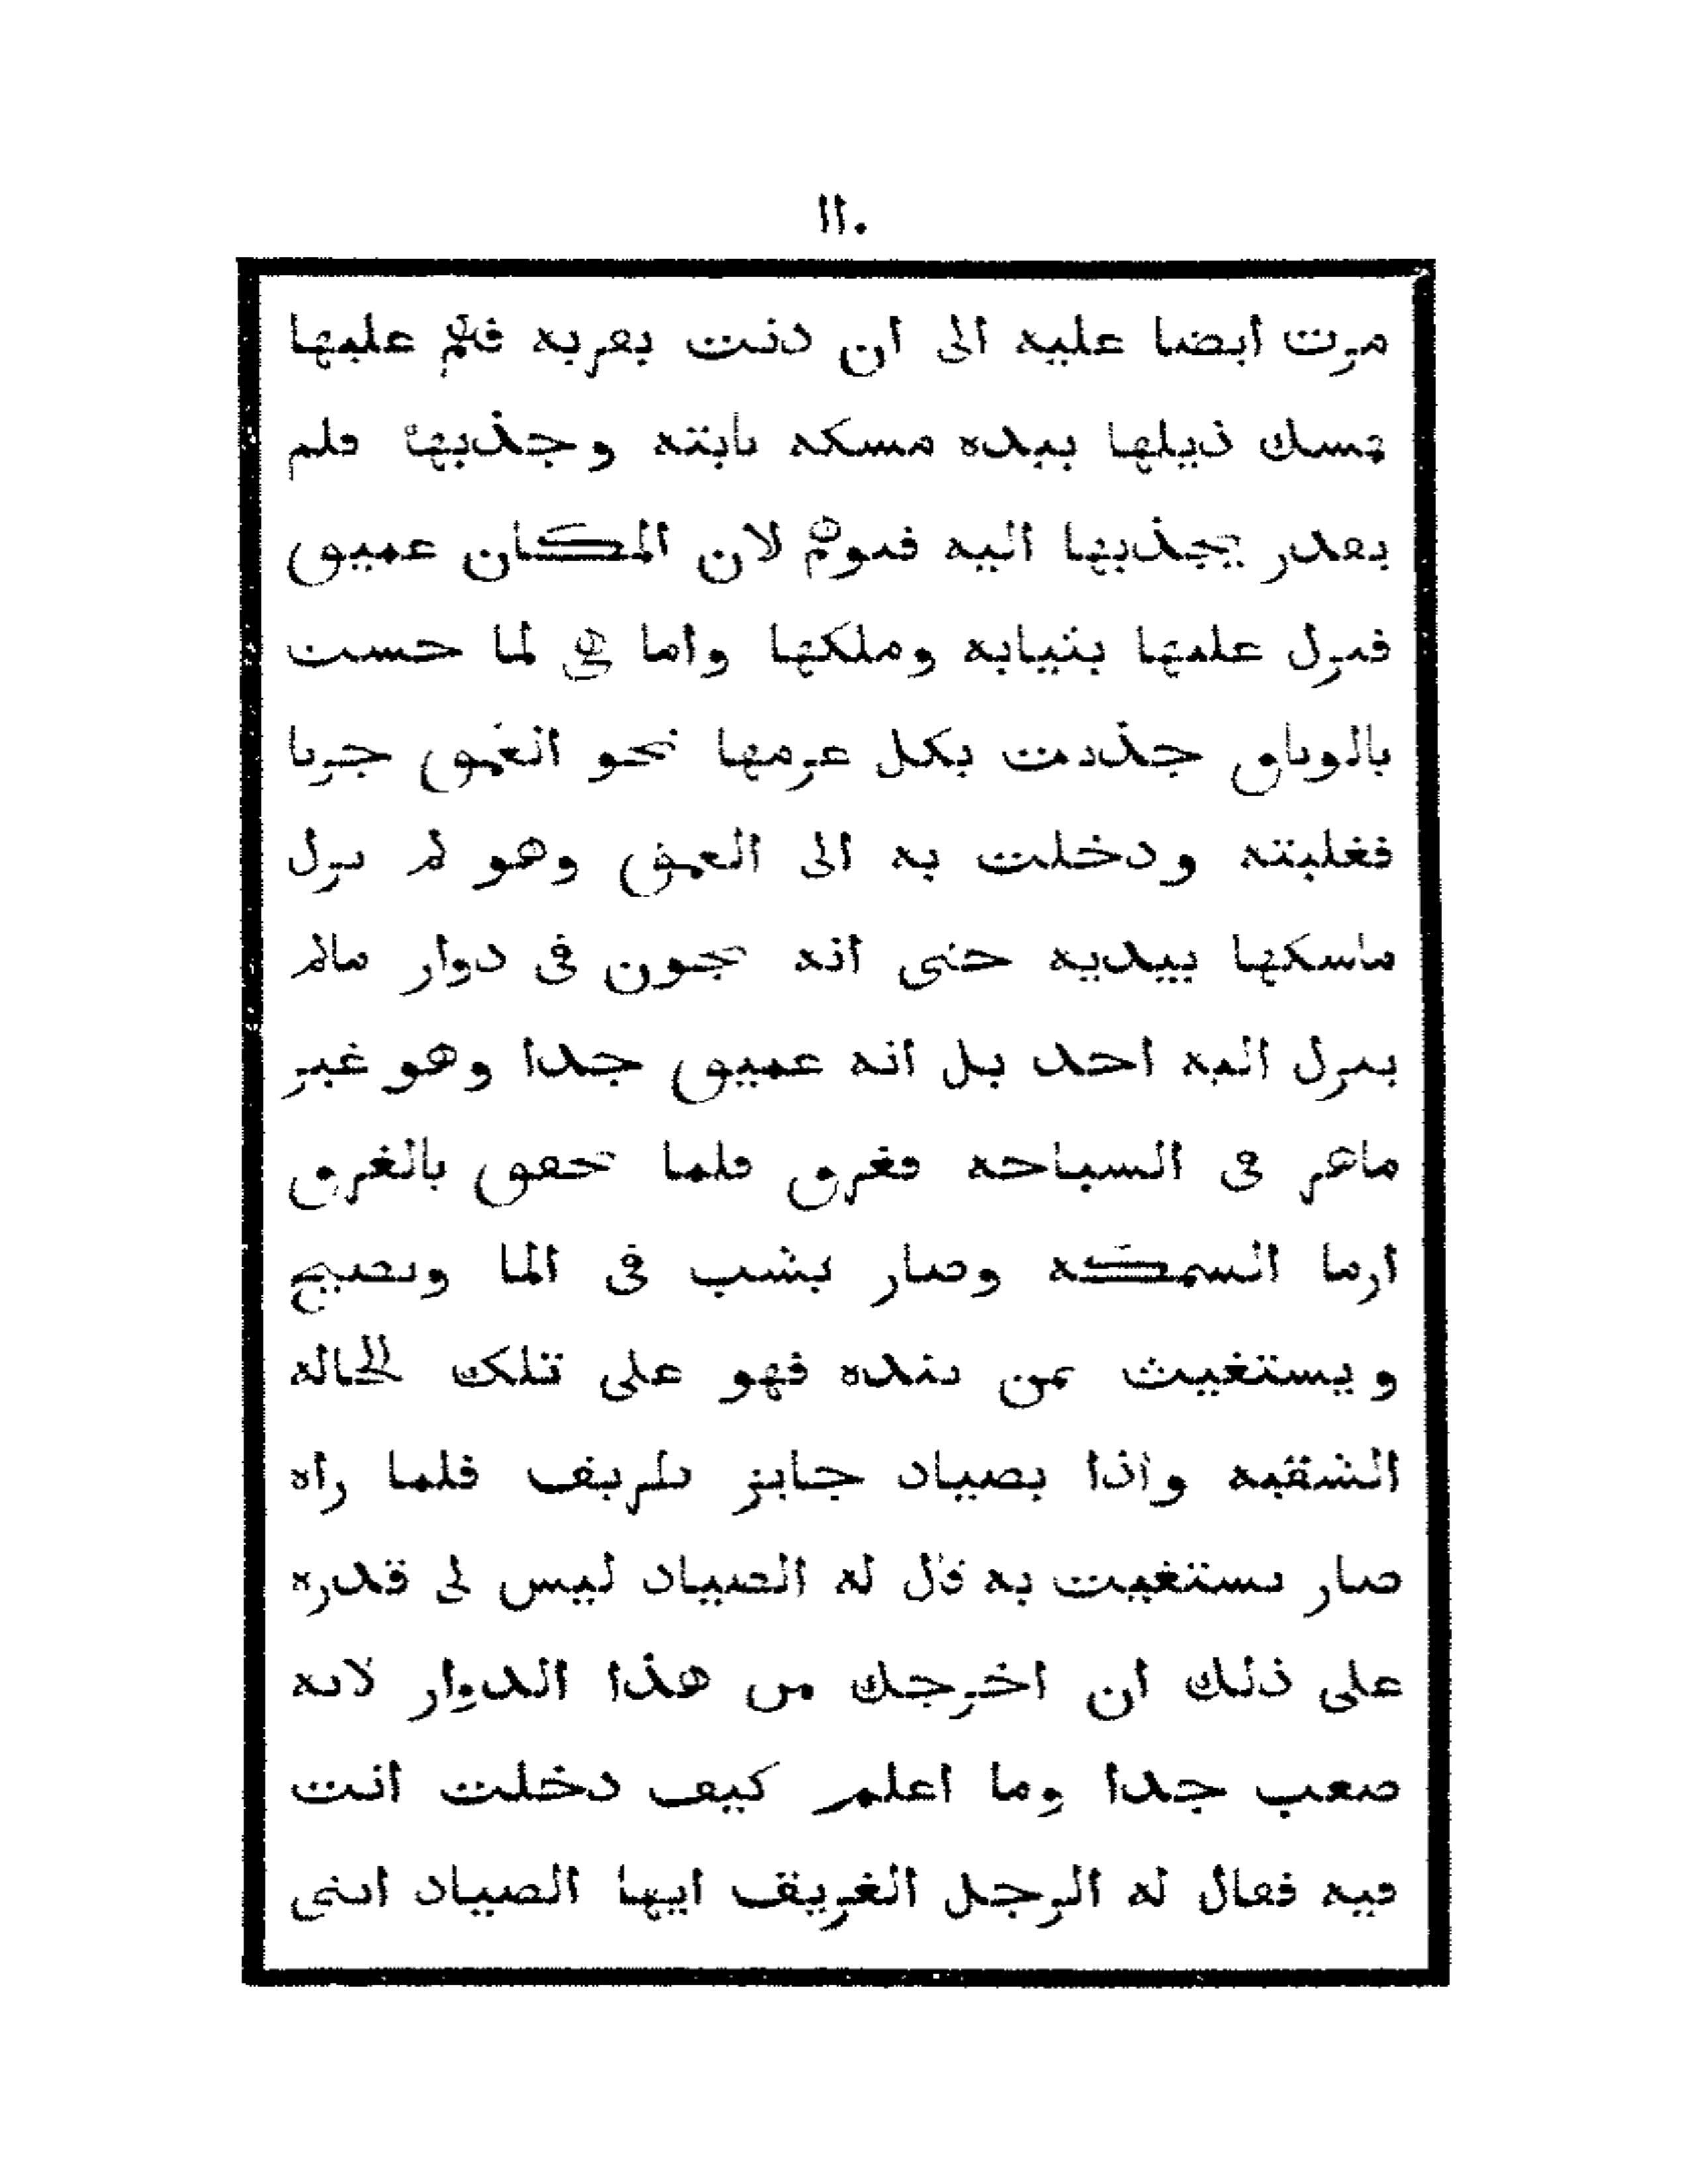 ١١٠
مرت ايضا عليه الى ان دنت بقربه فلم عليها
يمسك ذيلها بيده مسكه ثابته وجذبها فلم
يقدر يجذبها اليه لان المكان عميق
فنزل عليها بثيابه وملكها واما لما حست
بالوثاق جذدت بكل عزمها نحو الغموق جريا
فغلبته ودخلت به الى العمق وهو لم يزل
ماسكها بيديه حتى انه يجون فى دوار مالم
ينزل اليه احد بل انه عميق جدا وهو غير
ماهر فى السباحه فغرق فلما تحقق بالغرق
ارما السمكه وصار يشب فى الما ويصيح
ويستغيث بمن ينده فهو على تلك الحاله
الشقيه واذا بصياد جايز بطريف فلما راه
صار يستغيث به قال له الصياد ليس لى قدره
على ذلك ان اخرجك من هذا الدوار لانه
صعب جدا وما اعلم كيف دخلت انت
فيه فقال له الرجل الغريق ايها الصياد اننى